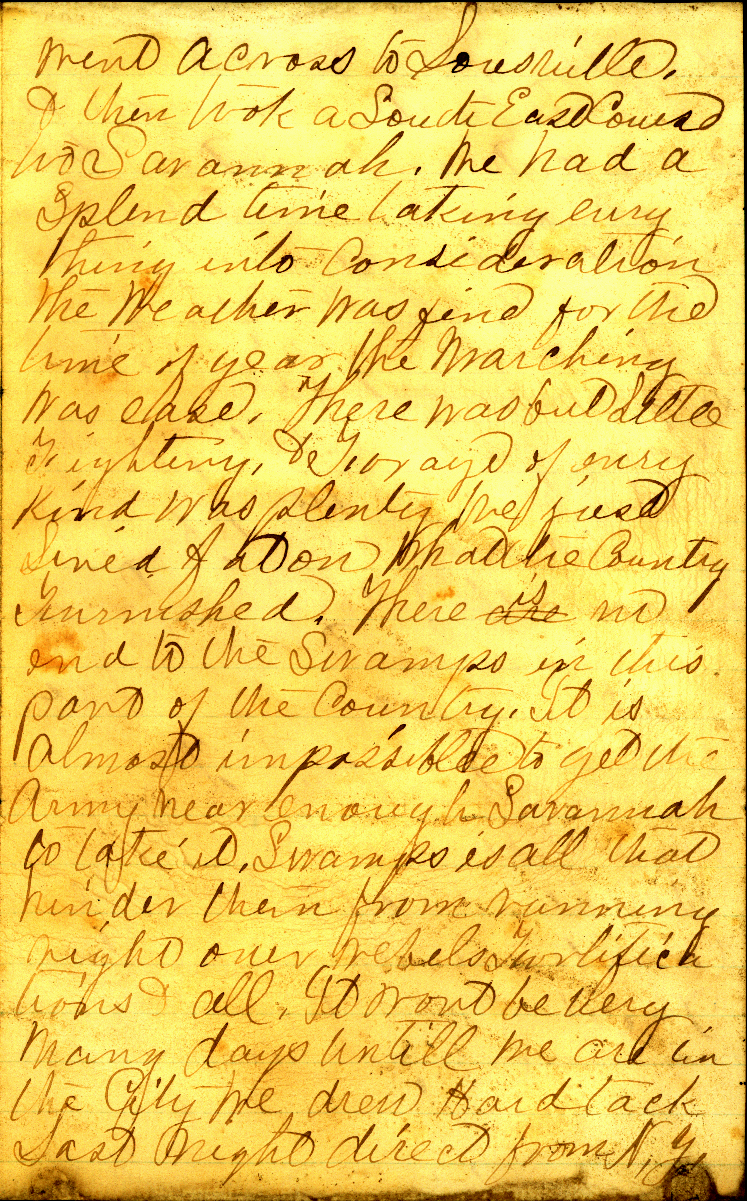 went across to Louisville,
& then took a South East Course
to Savannah. We had a
Splend time taking evry
thing into Consideration
the Weather was fine for the
time of year the Marching
was ease, There was but Little
Fighting, & Forage of evry
Kind was plenty, we just
Lived fat on What the Country
Furnished. There is no
end to the Swamps in this
part of the Country. It is
almost impossible to get the
Army near enough Savannah
to take it, Swamps is all that
hinder them from running
right over rebels Fortifica
tions & all. It wont be very
Many days untill we are in
the City We drew Hard tack
Last night direct from N,Y,